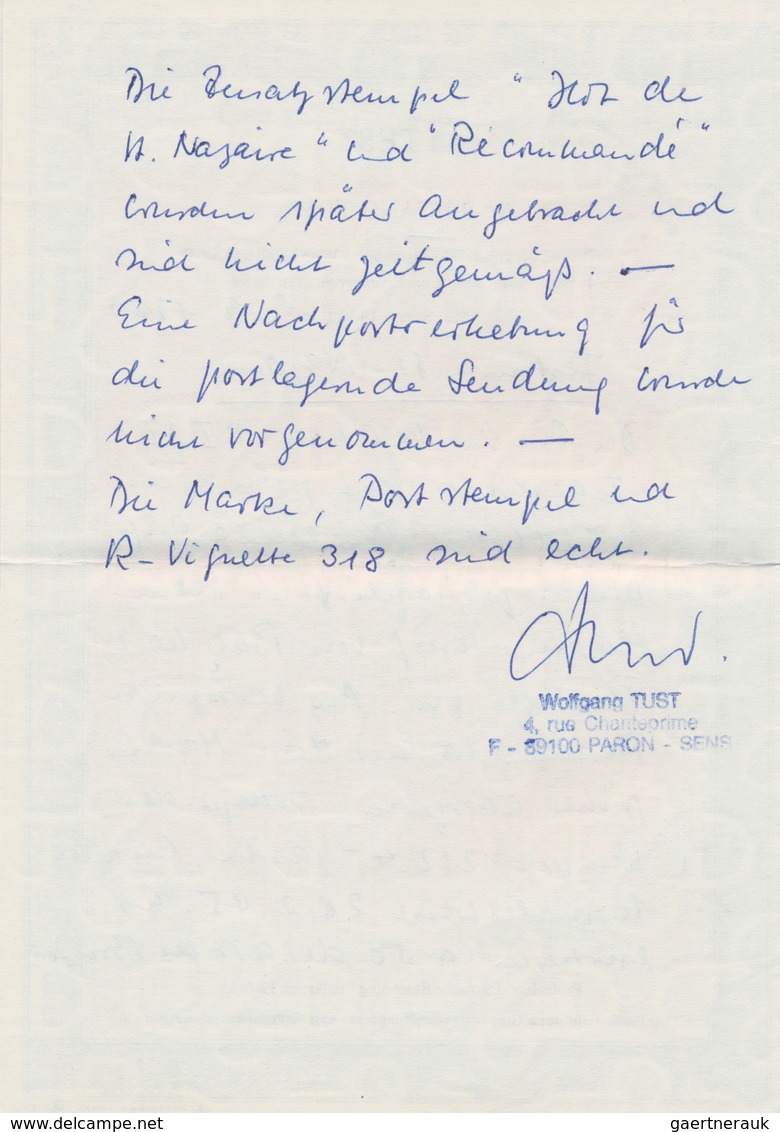 Die Zusatzstempel "Ilôt de
St. Nazaire" und "Recommandé"
wurden später angebracht und
sind nicht zeitgemäß. —
Eine Nachportoerhebung für
die postlagernde Sendung wurde
nicht vorgenommen. —
Die Marke, Poststempel und
R-Vignette 318 sind echt.
Wolfgang TUST
4, rue Chanteprime
F - 89100 PARON - SENS
delcampe.net
gaertnerauk